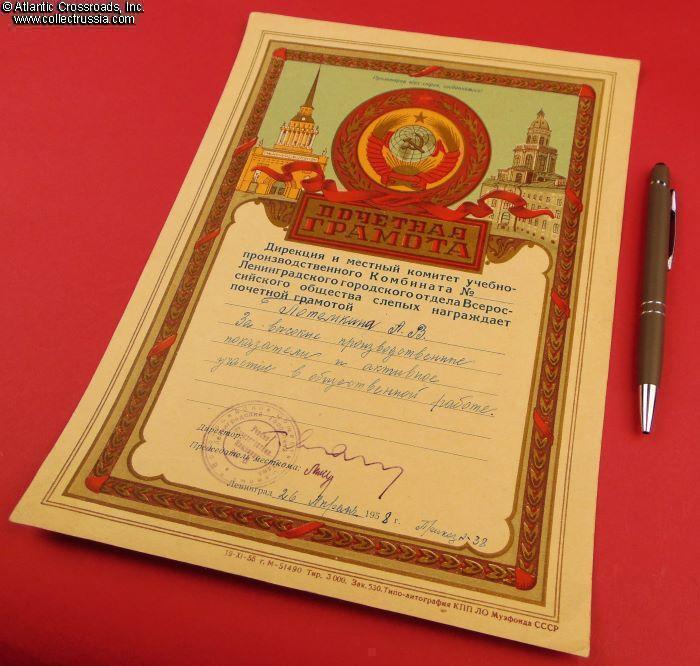 © Atlantic Crossroads, Inc.
www.collectrussia.com
Пролетарии всех стран, соединяйтесь!
ПОЧЕТНАЯ
ГРАМОТА
Дирекция и местный комитет учебно-
производственного Комбината №
Ленинградского городского отдела Всерос-
сийского общества слепых награждает
почетной грамотой
Потемкина А. В.
За высокие производственные
показатели и активное
участие в общественной работе.
Директор:
Председатель месткома:
Ленинград 26 Апреля 1958 г.
Приказ № 38
19-XI-55 г. М-51490 Тир. 3 000. Зак. 530. Типо-литография КПП ЛО Музфонда СССР